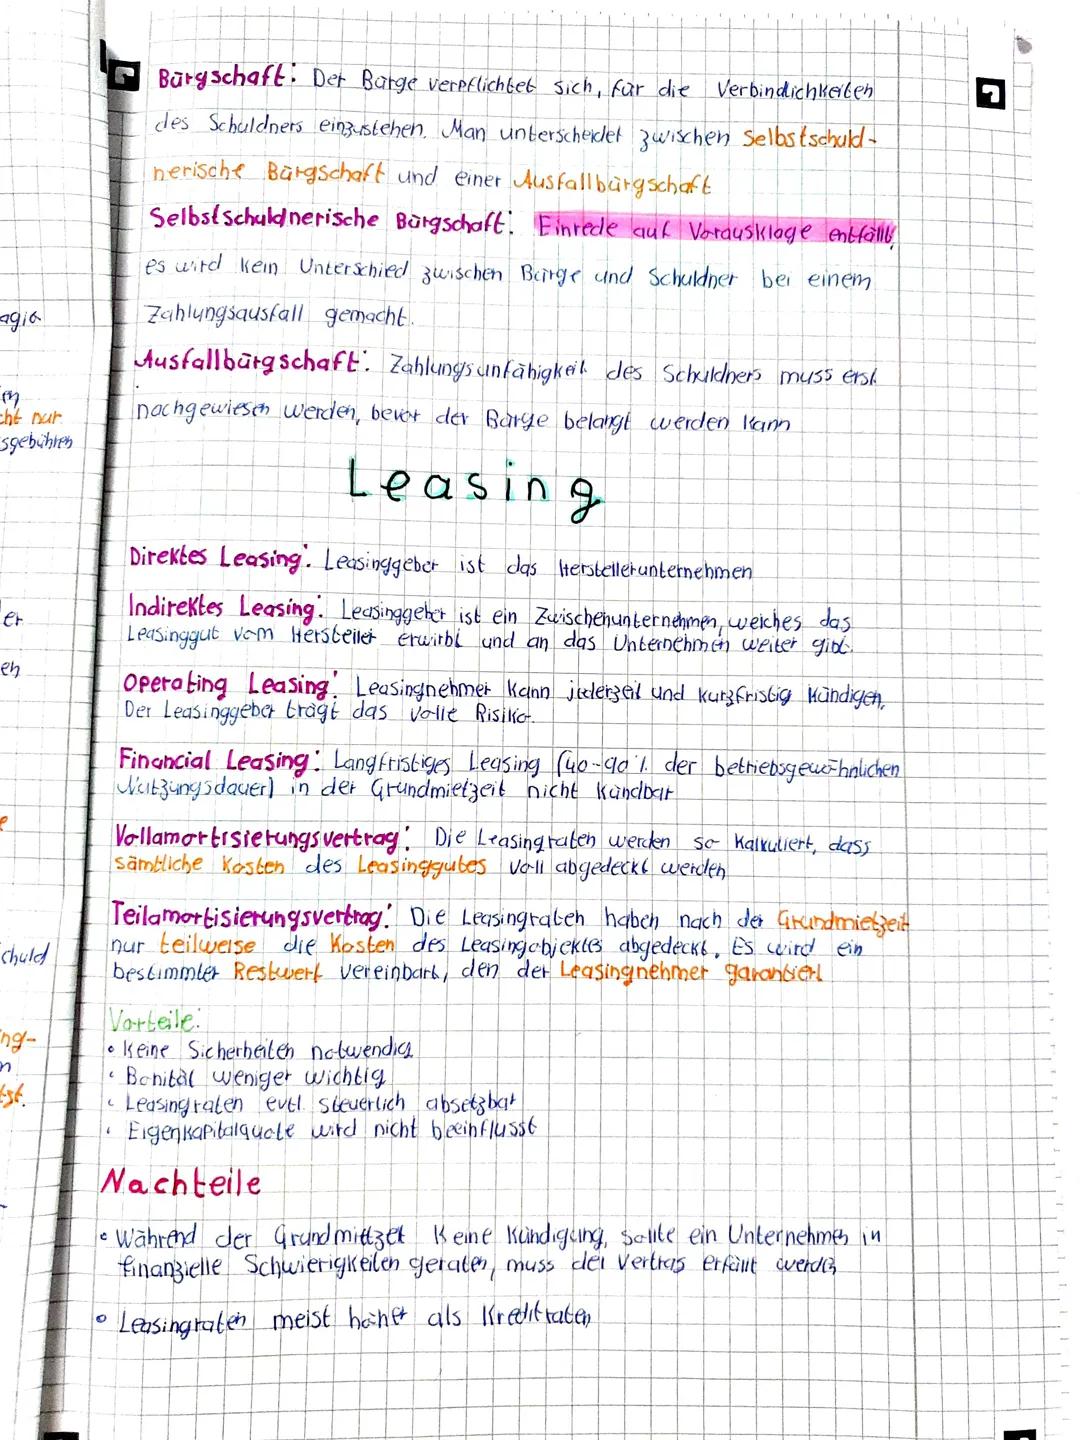 Bürgschaft: Der Bürge verpflichtet sich, für die Verbindlichkeiten
des Schuldners einzustehen. Man unterscheidet zwischen Selbstschuld-
nerische Bürgschaft und einer Ausfallbürgschaft
Selbstschuldnerische Bürgschaft: Einrede auf Vorausklage entfällt,
es wird kein Unterschied zwischen Bürge und Schuldner bei einem
Zahlungsausfall gemacht.
Ausfallbürgschaft: Zahlungsunfähigkeit des Schuldners muss erst
nachgewiesen werden, bevor der Bürge belangt werden kann
Leasing
Direktes Leasing: Leasinggeber ist das Herstellerunternehmen
Indirektes Leasing: Leasinggeber ist ein Zwischenunternehmen, welches das
Leasinggut vom Hersteller erwirbt und an das Unternehmen weiter gibt.
Operating Leasing: Leasingnehmer kann jederzeit und kurzfristig kündigen,
Der Leasinggeber trägt das volle Risiko.
Financial Leasing: Langfristiges Leasing (40-90% der betriebsgewöhnlichen
Nutzungsdauer) in der Grundmietzeit nicht kündbar
Vollamortisierungsvertrag: Die Leasingraten werden so kalkuliert, dass
sämtliche Kosten des Leasinggutes voll abgedeckt werden
Teilamortisierungsvertrag: Die Leasingraten haben nach der Grundmietzeit
nur teilweise die Kosten des Leasingobjektes abgedeckt. Es wird ein
bestimmter Restwert vereinbart, den der Leasingnehmer garantiert
Vorteile:
• Keine Sicherheiten notwendig
• Bonität weniger wichtig
• Leasingraten evtl. steuerlich absetzbar
• Eigenkapitalquote wird nicht beeinflusst
Nachteile
• Während der Grundmietzeit keine Kündigung, sollte ein Unternehmen in
finanzielle Schwierigkeiten geraten, muss der Vertrag erfüllt werden
• Leasingraten meist höher als Kreditraten
agio
en
cht nur
sgebühren
er
en
e
chuld
ng-
n
tst.